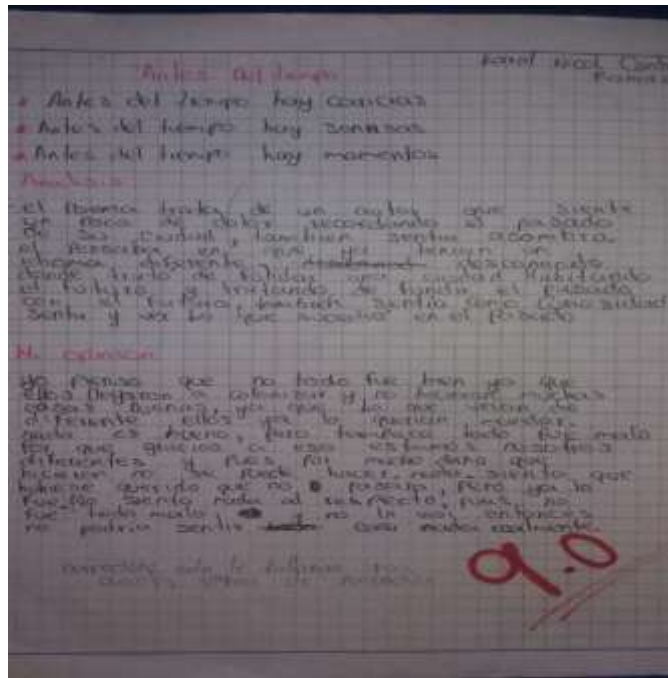 Antes del tiempo
Nicol
Antes del tiempo hay caricias
Antes del tiempo hay sonrisas
Antes del tiempo hay momentos
Analisis
El Poema trata de un autor que siente
un poco de dolor recordando el pasado
de su ciudad, tambien sentia
el en que ya tenian un
idioma diferente y desconocido
trato de una ciudad habitando
el futuro y tratando de fundir el pasado
con el futuro, tambien sentia como curiosidad
sentir y ver lo que sucedio en el pasado
Mi opinion
Yo pienso que no todo fue bien ya que
ellos llegaron a colonizar y no hicieron muchas
cosas buenas, ya que lo que veian de
diferente ellos ya lo querian
nada es bueno, pero tampoco todo fue malo
por que gracias a eso estamos nosotros
diferentes y pues por mucho daño que
hicieron no se puede hacer nada, siento que
hubiese querido que no pasara, pero ya lo
siento nada al respecto, pues no
fue todo malo y no lo vivi, entonces
no podria sentir como nada realmente.
9.0